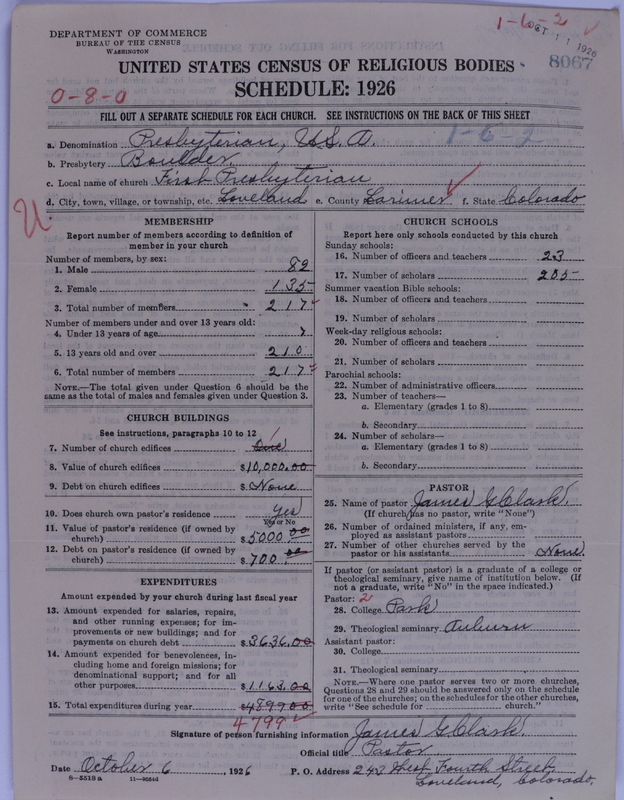 DEPARTMENT OF COMMERCE
BUREAU OF THE CENSUS
WASHINGTON
1-6-2
OCT 11 1926
8067
UNITED STATES CENSUS OF RELIGIOUS BODIES
SCHEDULE: 1926
0-8-0
FILL OUT A SEPARATE SCHEDULE FOR EACH CHURCH. SEE INSTRUCTIONS ON THE BACK OF THIS SHEET
1-6-2
a. Denomination Presbyterian, U.S.A.
b. Presbytery Boulder
c. Local name of church First Presbyterian
d. City, town, village, or township, etc. Loveland e. County Larimer f. State Colorado
U
MEMBERSHIP
Report number of members according to definition of
member in your church
Number of members, by sex:
1. Male 82
2. Female 135
3. Total number of members 217
Number of members under and over 13 years old:
4. Under 13 years of age 7
5. 13 years old and over 210
6. Total number of members 217
NOTE.—The total given under Question 6 should be the
same as the total of males and females given under Question 3.
CHURCH BUILDINGS
See instructions, paragraphs 10 to 12
7. Number of church edifices One 1
8. Value of church edifices $10,000.00
9. Debt on church edifices $ None
10. Does church own pastor's residence Yes
Yes or No
11. Value of pastor's residence (if owned by
church) $5000.00
12. Debt on pastor's residence (if owned by
church) $700.00
EXPENDITURES
Amount expended by your church during last fiscal year
13. Amount expended for salaries, repairs,
and other running expenses; for im-
provements or new buildings; and for
payments on church debt $3636.00
14. Amount expended for benevolences, in-
cluding home and foreign missions; for
denominational support; and for all
other purposes $1163.00
15. Total expenditures during year $4899.00
4799
CHURCH SCHOOLS
Report here only schools conducted by this church
Sunday schools:
16. Number of officers and teachers 23
17. Number of scholars 205
Summer vacation Bible schools:
18. Number of officers and teachers
19. Number of scholars
Week-day religious schools:
20. Number of officers and teachers
21. Number of scholars
Parochial schools:
22. Number of administrative officers
23. Number of teachers—
a. Elementary (grades 1 to 8)
b. Secondary
24. Number of scholars—
a. Elementary (grades 1 to 8)
b. Secondary
PASTOR
25. Name of pastor James G Clark
(If church has no pastor, write "None")
26. Number of ordained ministers, if any, em-
ployed as assistant pastors
27. Number of other churches served by the
pastor or his assistants None
If pastor (or assistant pastor) is a graduate of a college or
theological seminary, give name of institution below. (If
not a graduate, write "No" in the space indicated.)
Pastor: 2
28. College Park
29. Theological seminary Auburn
Assistant pastor:
30. College
31. Theological seminary
NOTE.—Where one pastor serves two or more churches,
Questions 28 and 29 should be answered only on the schedule
for one of the churches; on the schedules for the other churches,
write "See schedule for church."
Signature of person furnishing information James G Clark
Official title Pastor
Date October 6, 1926 P. O. Address 243 West Fourth Street,
Loveland, Colorado.